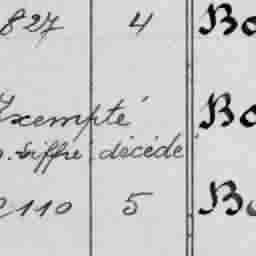 827 4 Bo
Exempté Bo
décédé
110 5 Bo